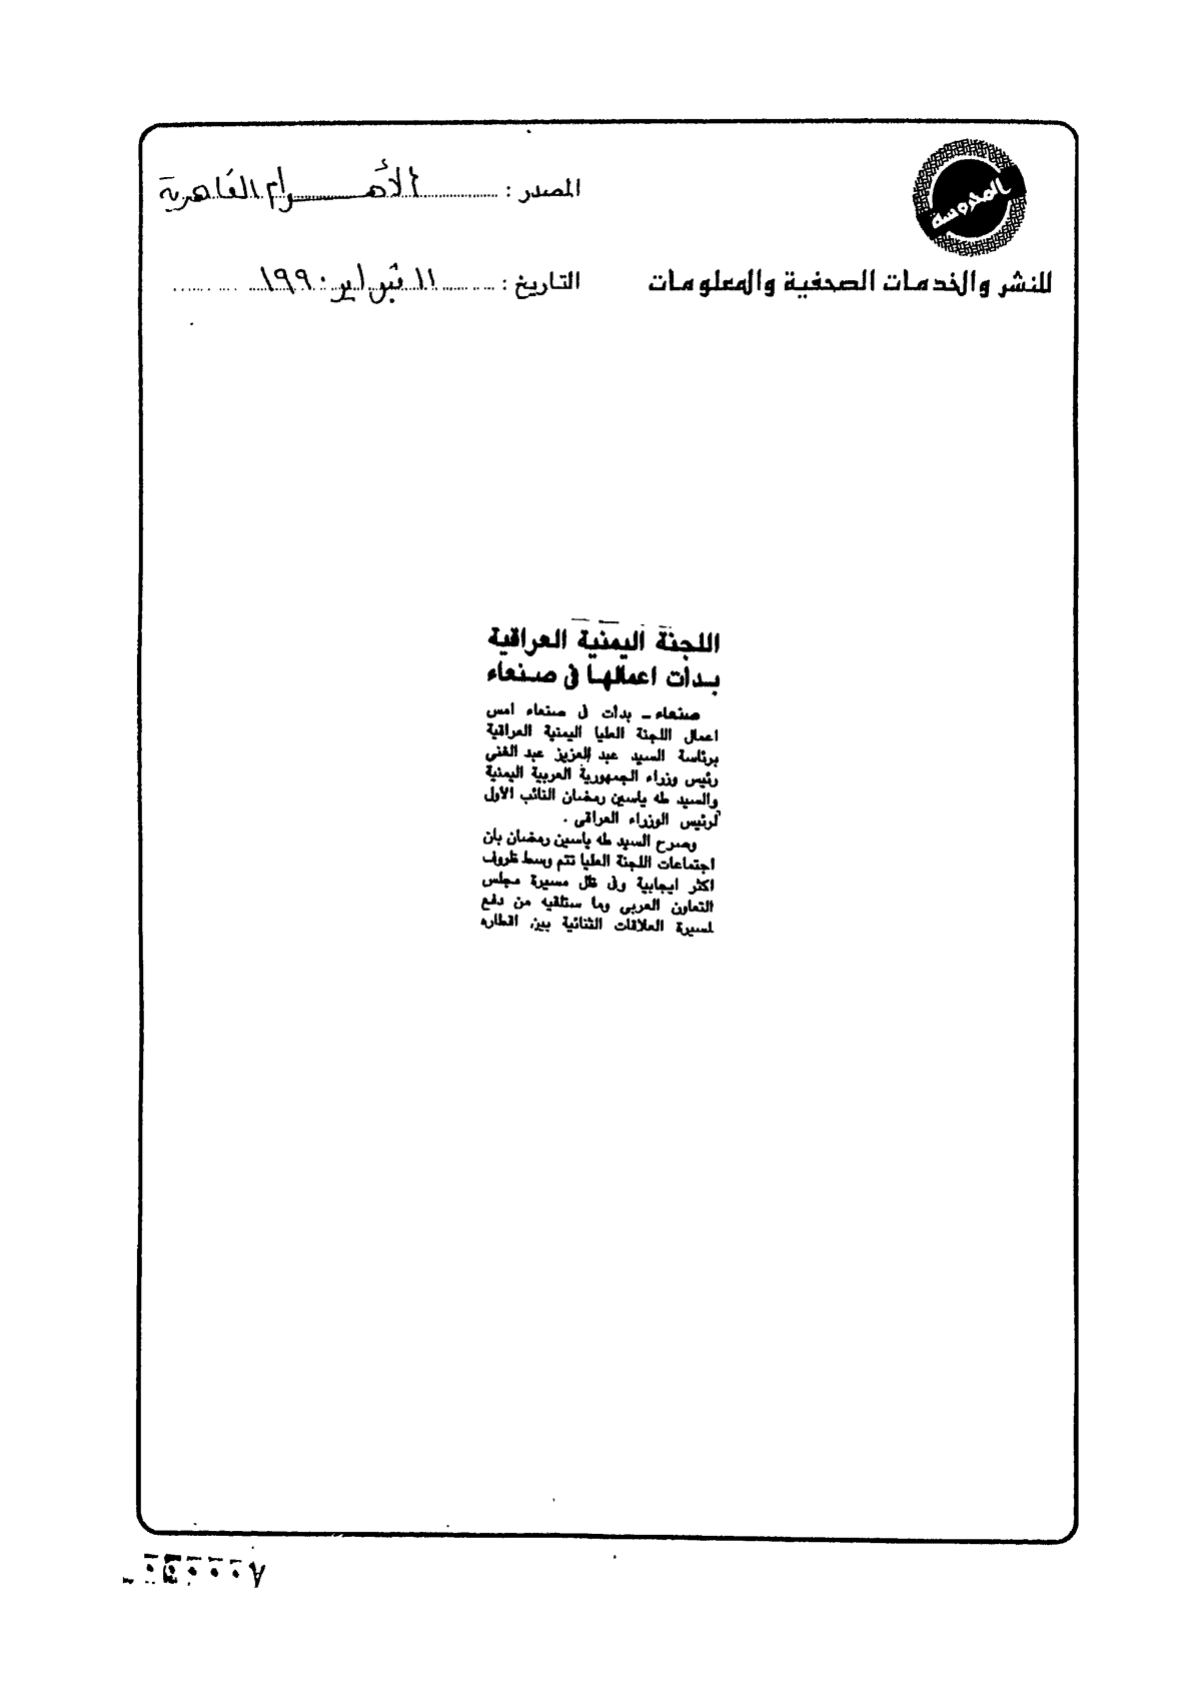 المحروسة
للنشر والخدمات الصحفية والمعلومات
المصدر : الأهرام القاهرية
التاريخ : ١١ فبراير ١٩٩٠
اللجنة اليمنية العراقية
بدأت اعمالها فى صنعاء
صنعاء ـ بدأت فى صنعاء امس
اعمال اللجنة العليا اليمنية العراقية
برئاسة السيد عبد العزيز عبد الغنى
رئيس وزراء الجمهورية العربية اليمنية
والسيد طه ياسين رمضان النائب الأول
لرئيس الوزراء العراقى .
وصرح السيد طه ياسين رمضان بان
اجتماعات اللجنة العليا تتم وسط ظروف
اكثر ايجابية وفى ظل مسيرة مجلس
التعاون العربى وما ستلقيه من دفع
لمسيرة العلاقات الثنائية بين اقطاره